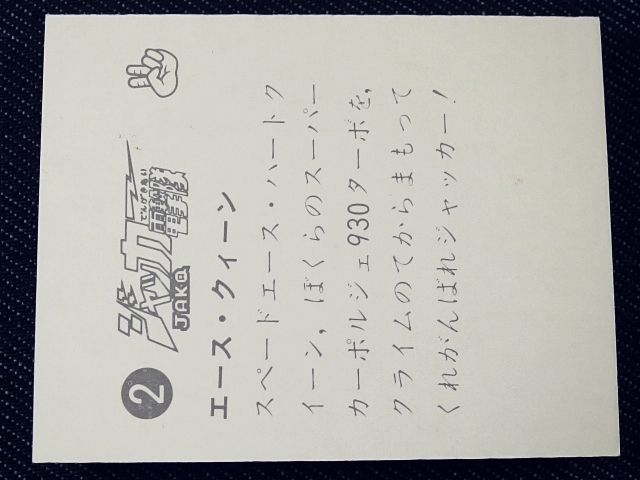 2
ジャッカー電撃隊
でんげきたい
JAKQ
エース・クィーン
スペードエース・ハートク
イーン,ぼくらのスーパー
カーポルジェ930ターボを,
クライムのてからまもって
くれがんばれジャッカー!